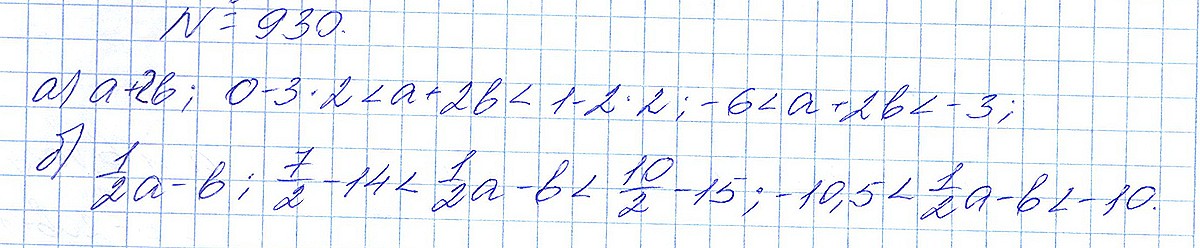 N= 930.
а) a+2b; 0-3·2<a+2b<1-2·2; -6<a+2b<-3;
б) 1/2a-b; 7/2-14<1/2a-b<10/2-15; -10,5<1/2a-b<-10.